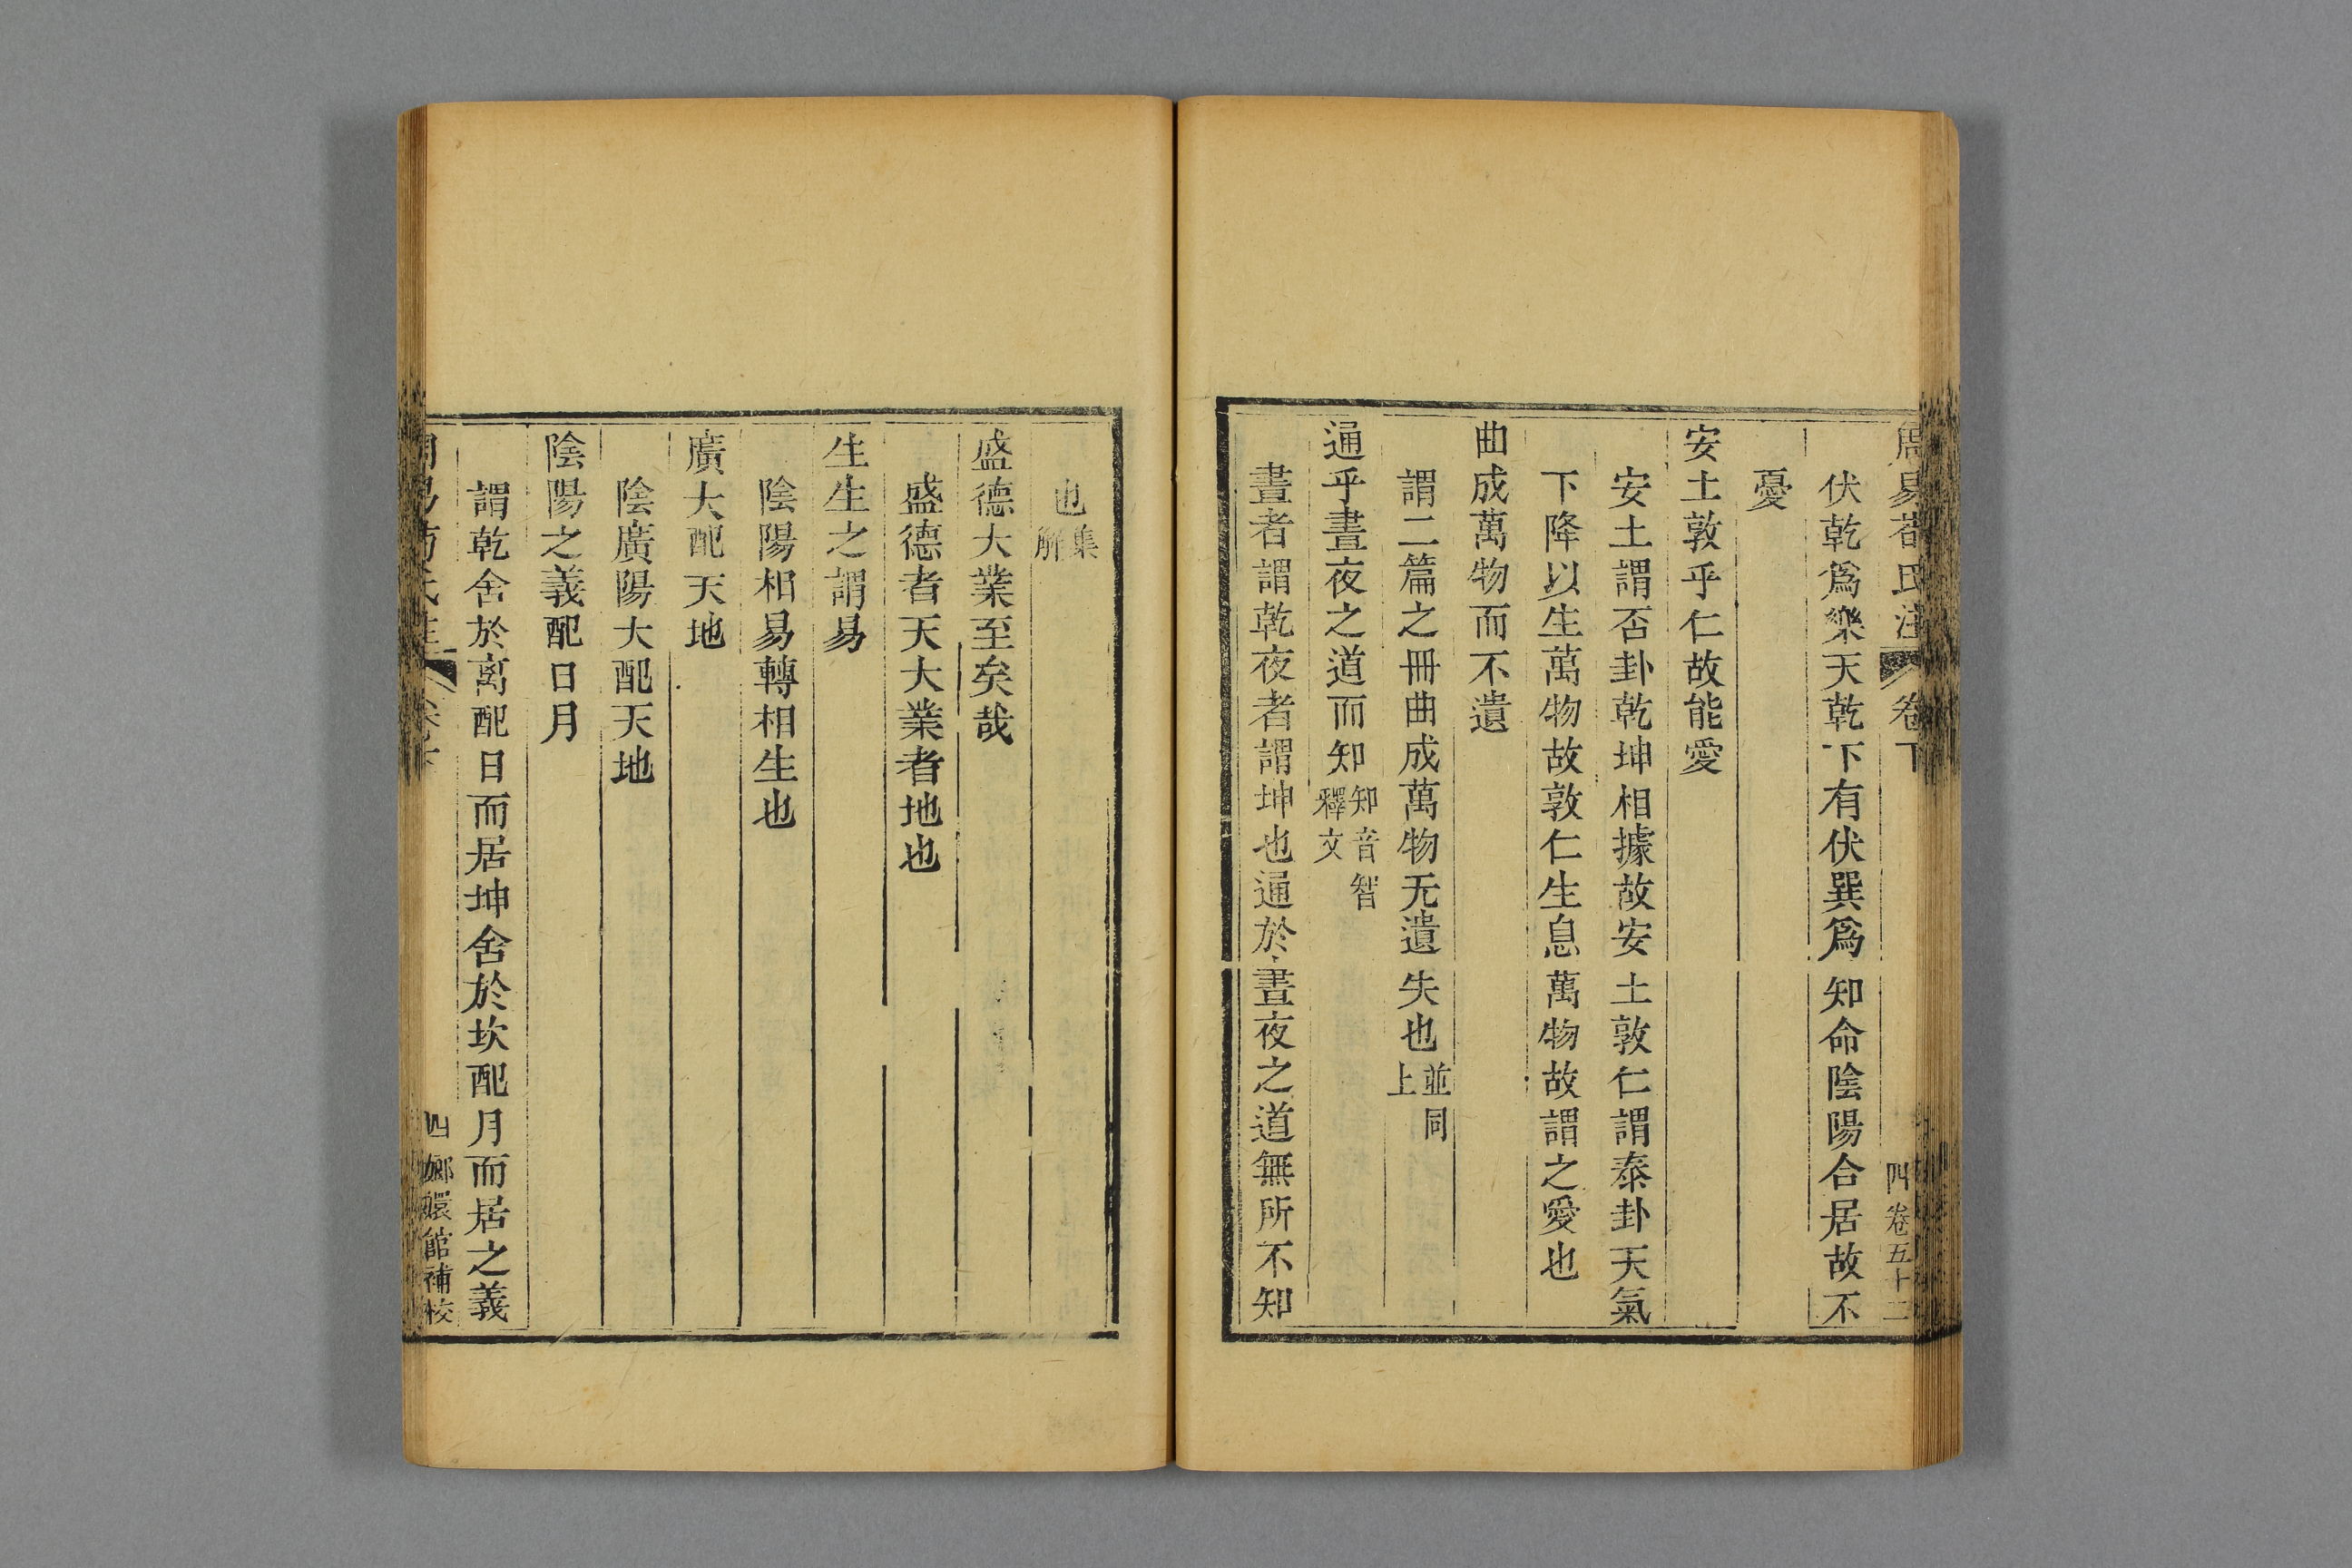 周易荀氏注 卷下 四 卷五十二
伏乾爲樂天乾下有伏巽爲知命陰陽合居故不
憂
安土敦乎仁故能愛
安土謂否卦乾坤相據故安土敦仁謂泰卦天氣
下降以生萬物故敦仁生息萬物故謂之愛也
曲成萬物而不遺
謂二篇之冊曲成萬物无遺失也並同上
通乎晝夜之道而知知音智釋文
晝者謂乾夜者謂坤也通於晝夜之道無所不知
也集解
盛德大業至矣哉
盛德者天大業者地也
生生之謂易
陰陽相易轉相生也
廣大配天地
陰廣陽大配天地
陰陽之義配日月
謂乾舍於离配日而居坤舍於坎配月而居之義
四 嫏嬛館補校